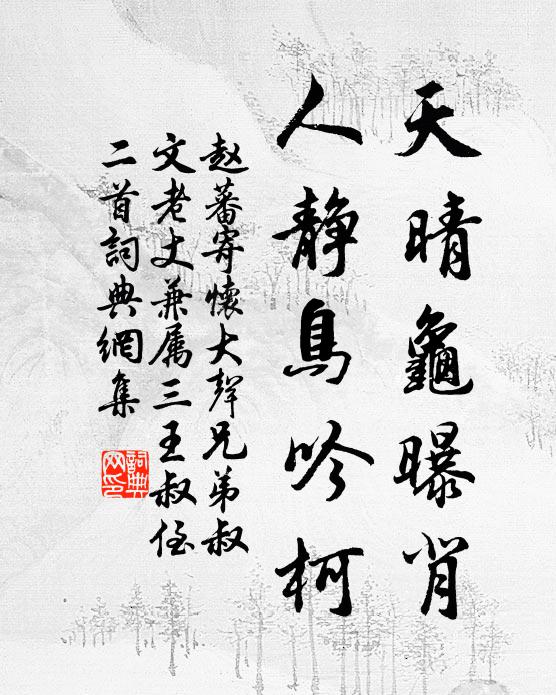 天晴龜曝背
人静鳥吟柯
赵蕃寄懷大聲兄弟叔
文老丈兼属三王叔侄
二首詞典網集
詞典网印